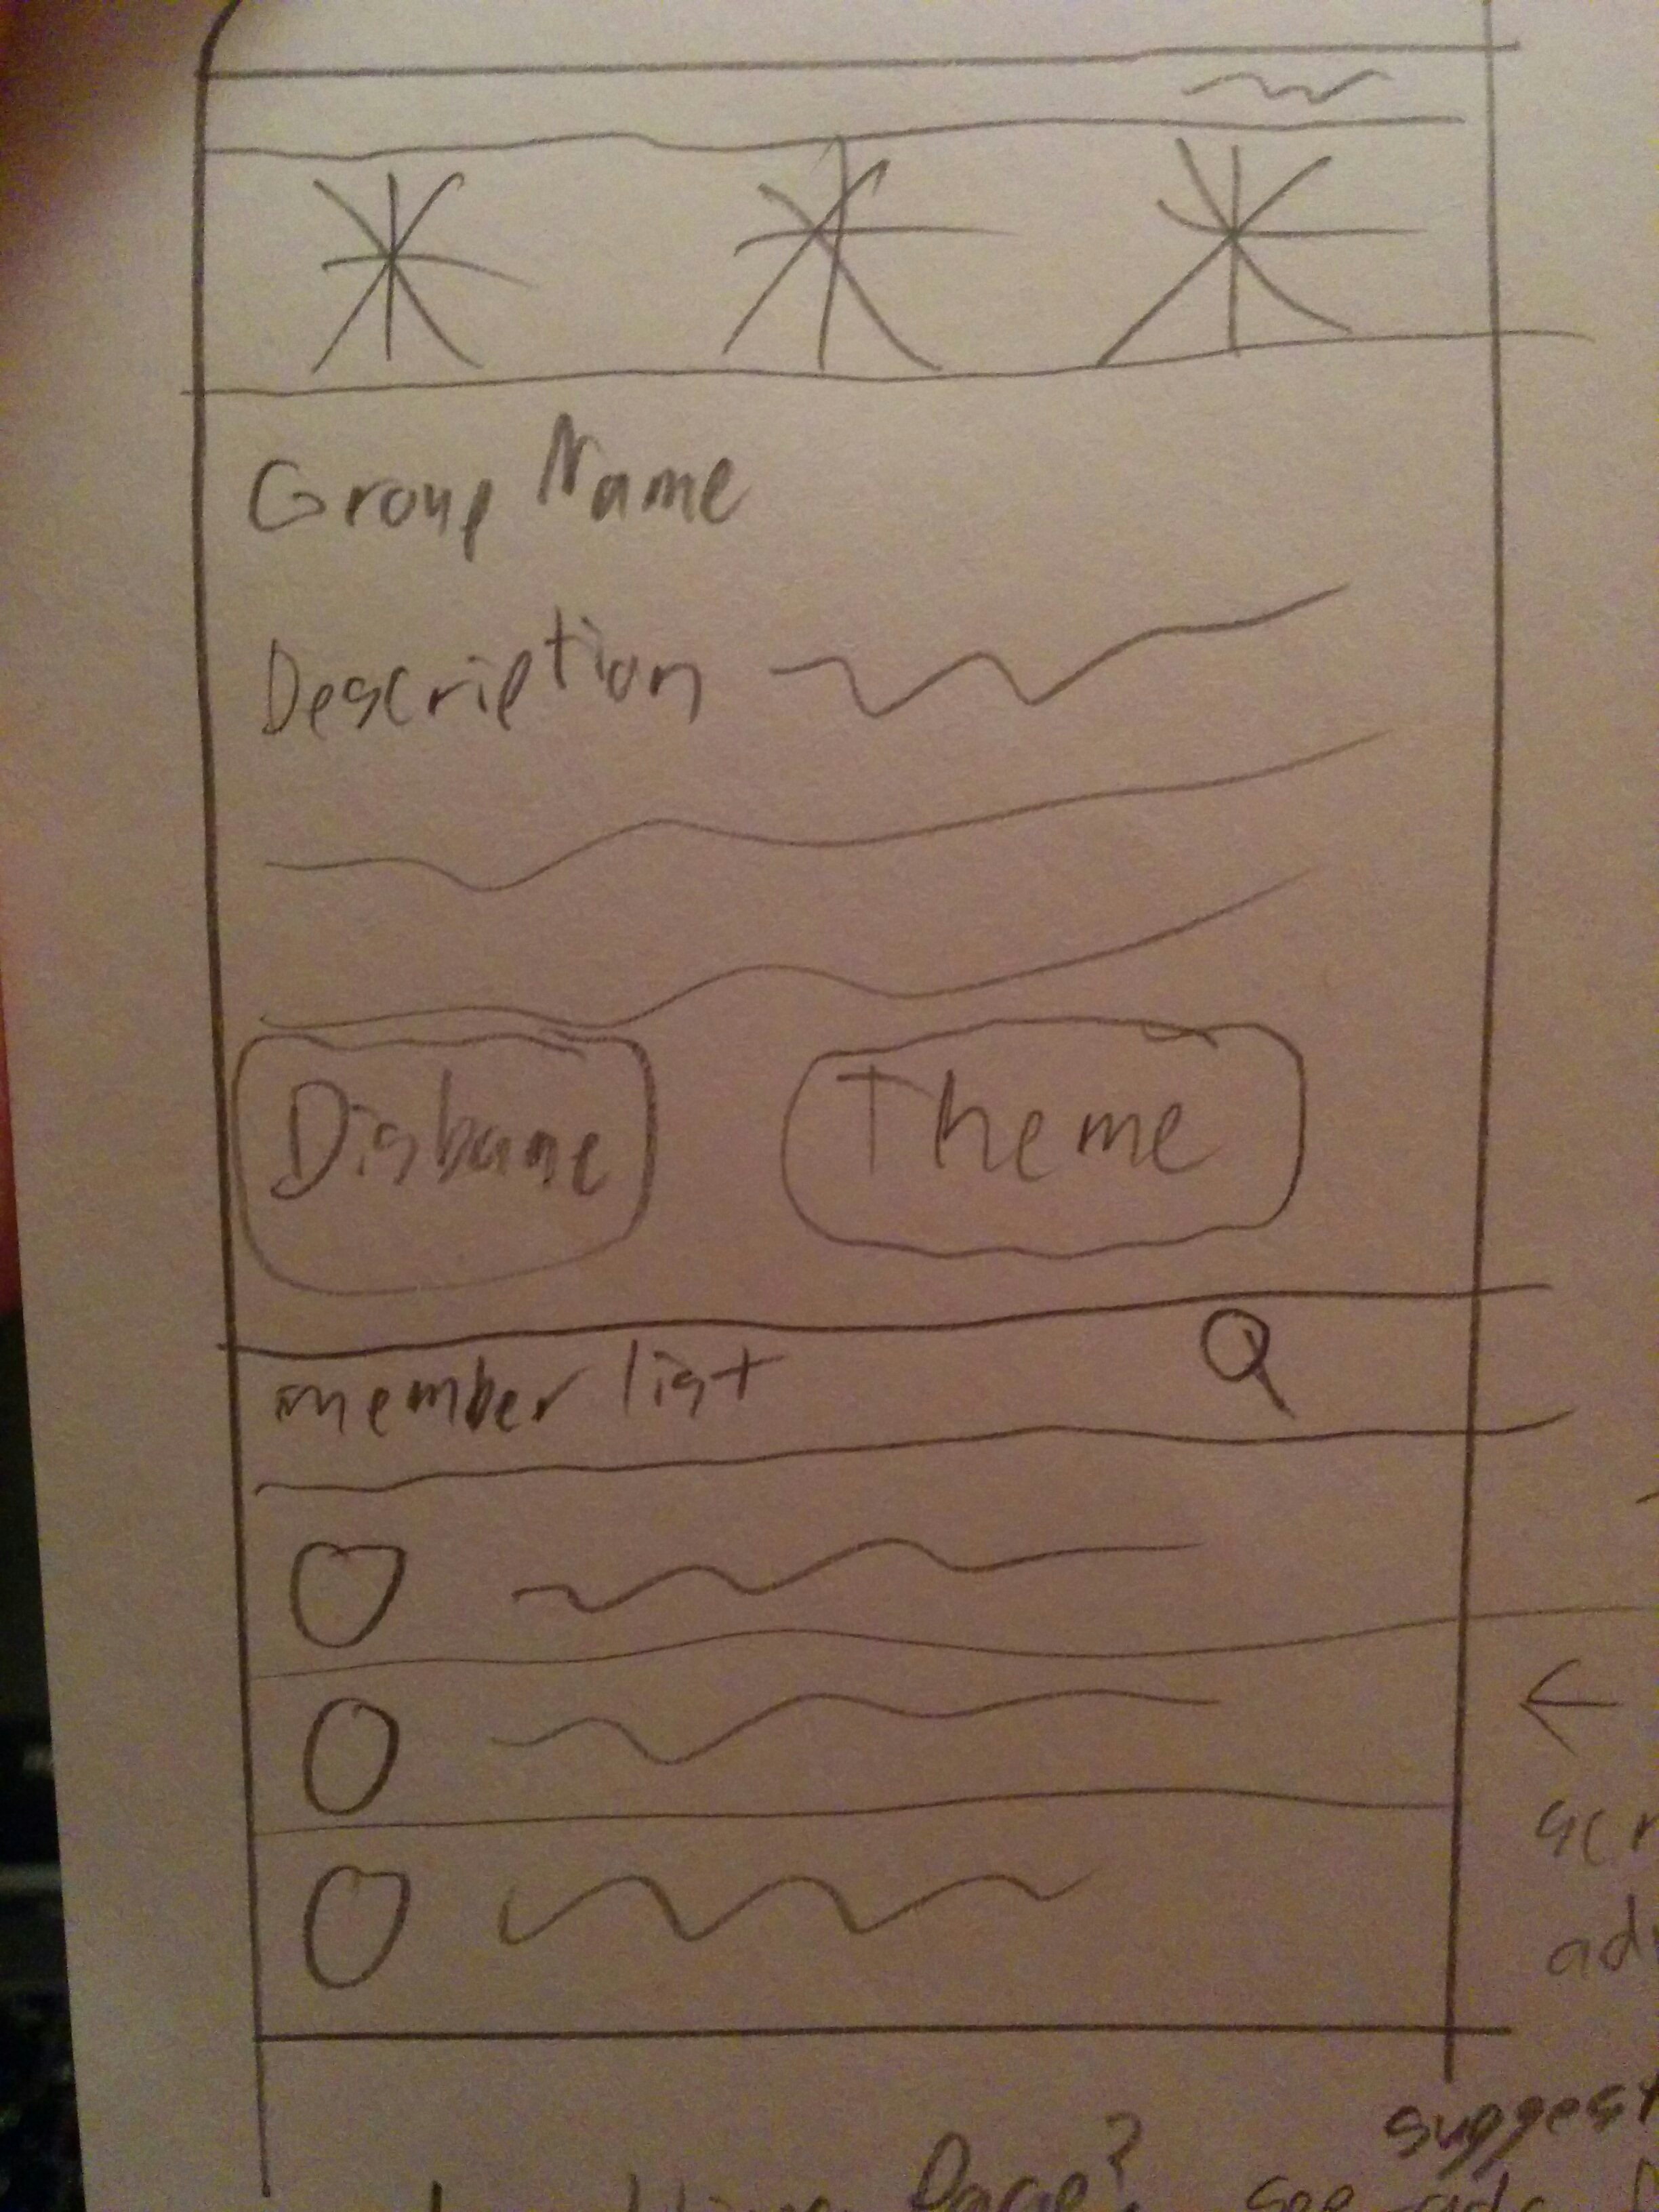 Group Name
Description
Disbane
Theme
member list
scr
ad
suggest
Page?
see